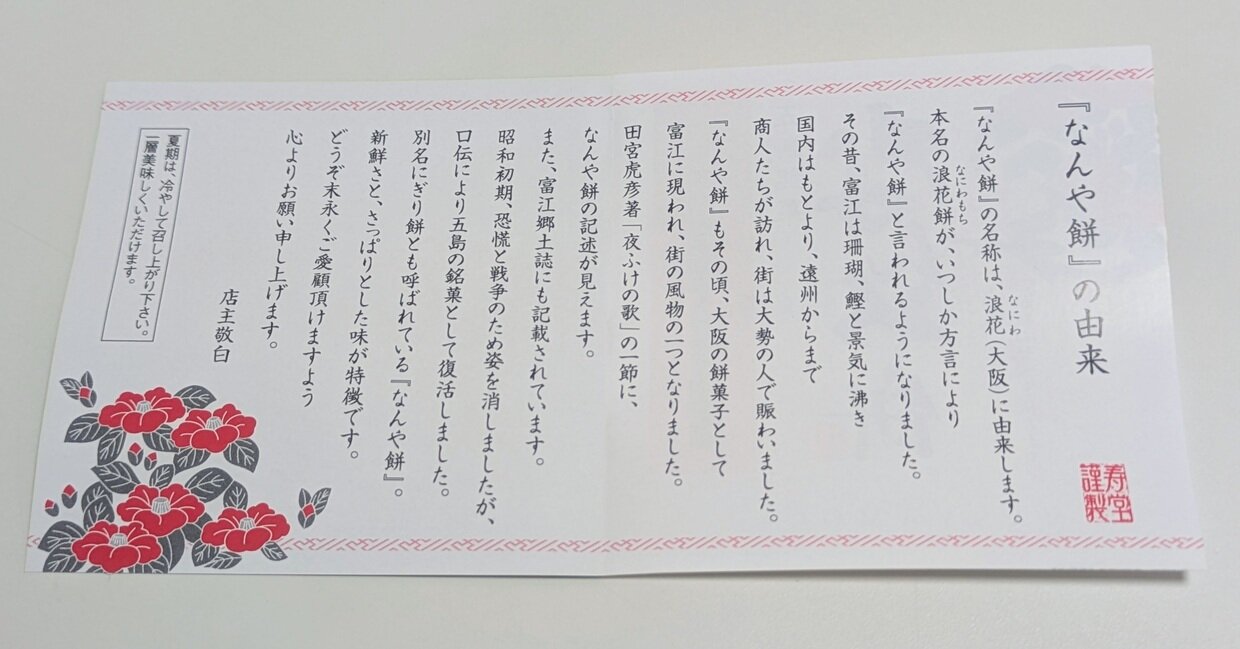 『なんや餅』の由来
寿堂
謹製
『なんや餅』の名称は、浪花(大阪)に由来します。
なにわ
本名の浪花餅が、いつしか方言により
なにわもち
『なんや餅』と言われるようになりました。
その昔、富江は珊瑚、鰹と景気に沸き
国内はもとより、遠州からまで
商人たちが訪れ、街は大勢の人で賑わいました。
『なんや餅』もその頃、大阪の餅菓子として
富江に現われ、街の風物の一つとなりました。
田宮虎彦著「夜ふけの歌」の一節に、
なんや餅の記述が見えます。
また、富江郷土誌にも記載されています。
昭和初期、恐慌と戦争のため姿を消しましたが、
口伝により五島の銘菓として復活しました。
別名にぎり餅とも呼ばれている『なんや餅』。
新鮮さと、さっぱりとした味が特徴です。
どうぞ末永くご愛顧頂けますよう
心よりお願い申し上げます。
店主敬白
夏期は、冷やして召し上がり下さい。
一層美味しくいただけます。